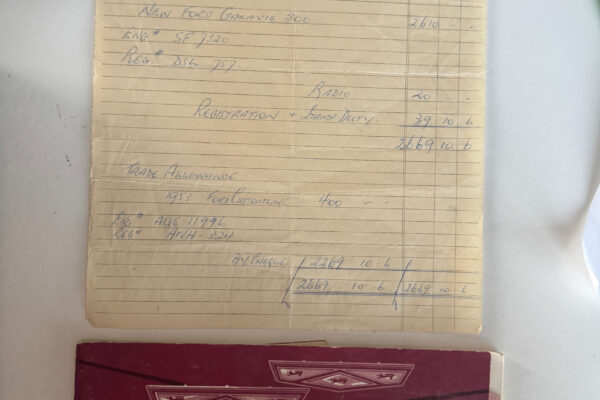 NEW FORD GALAXIE 500 2610 - -
ENG# SF 7320
REG# DSE. 757.
RADIO 20 - -
REGISTRATION + STAMP DUTY 39 10 6
2669 10 6
TRADE ALLOWANCE
1951 FORD CUSTOMLINE 400 - -
ENG# AOE 11996
REG# ANH-324
BY CHEQUE 2269 10 6
2669 10 6 2669 10 6